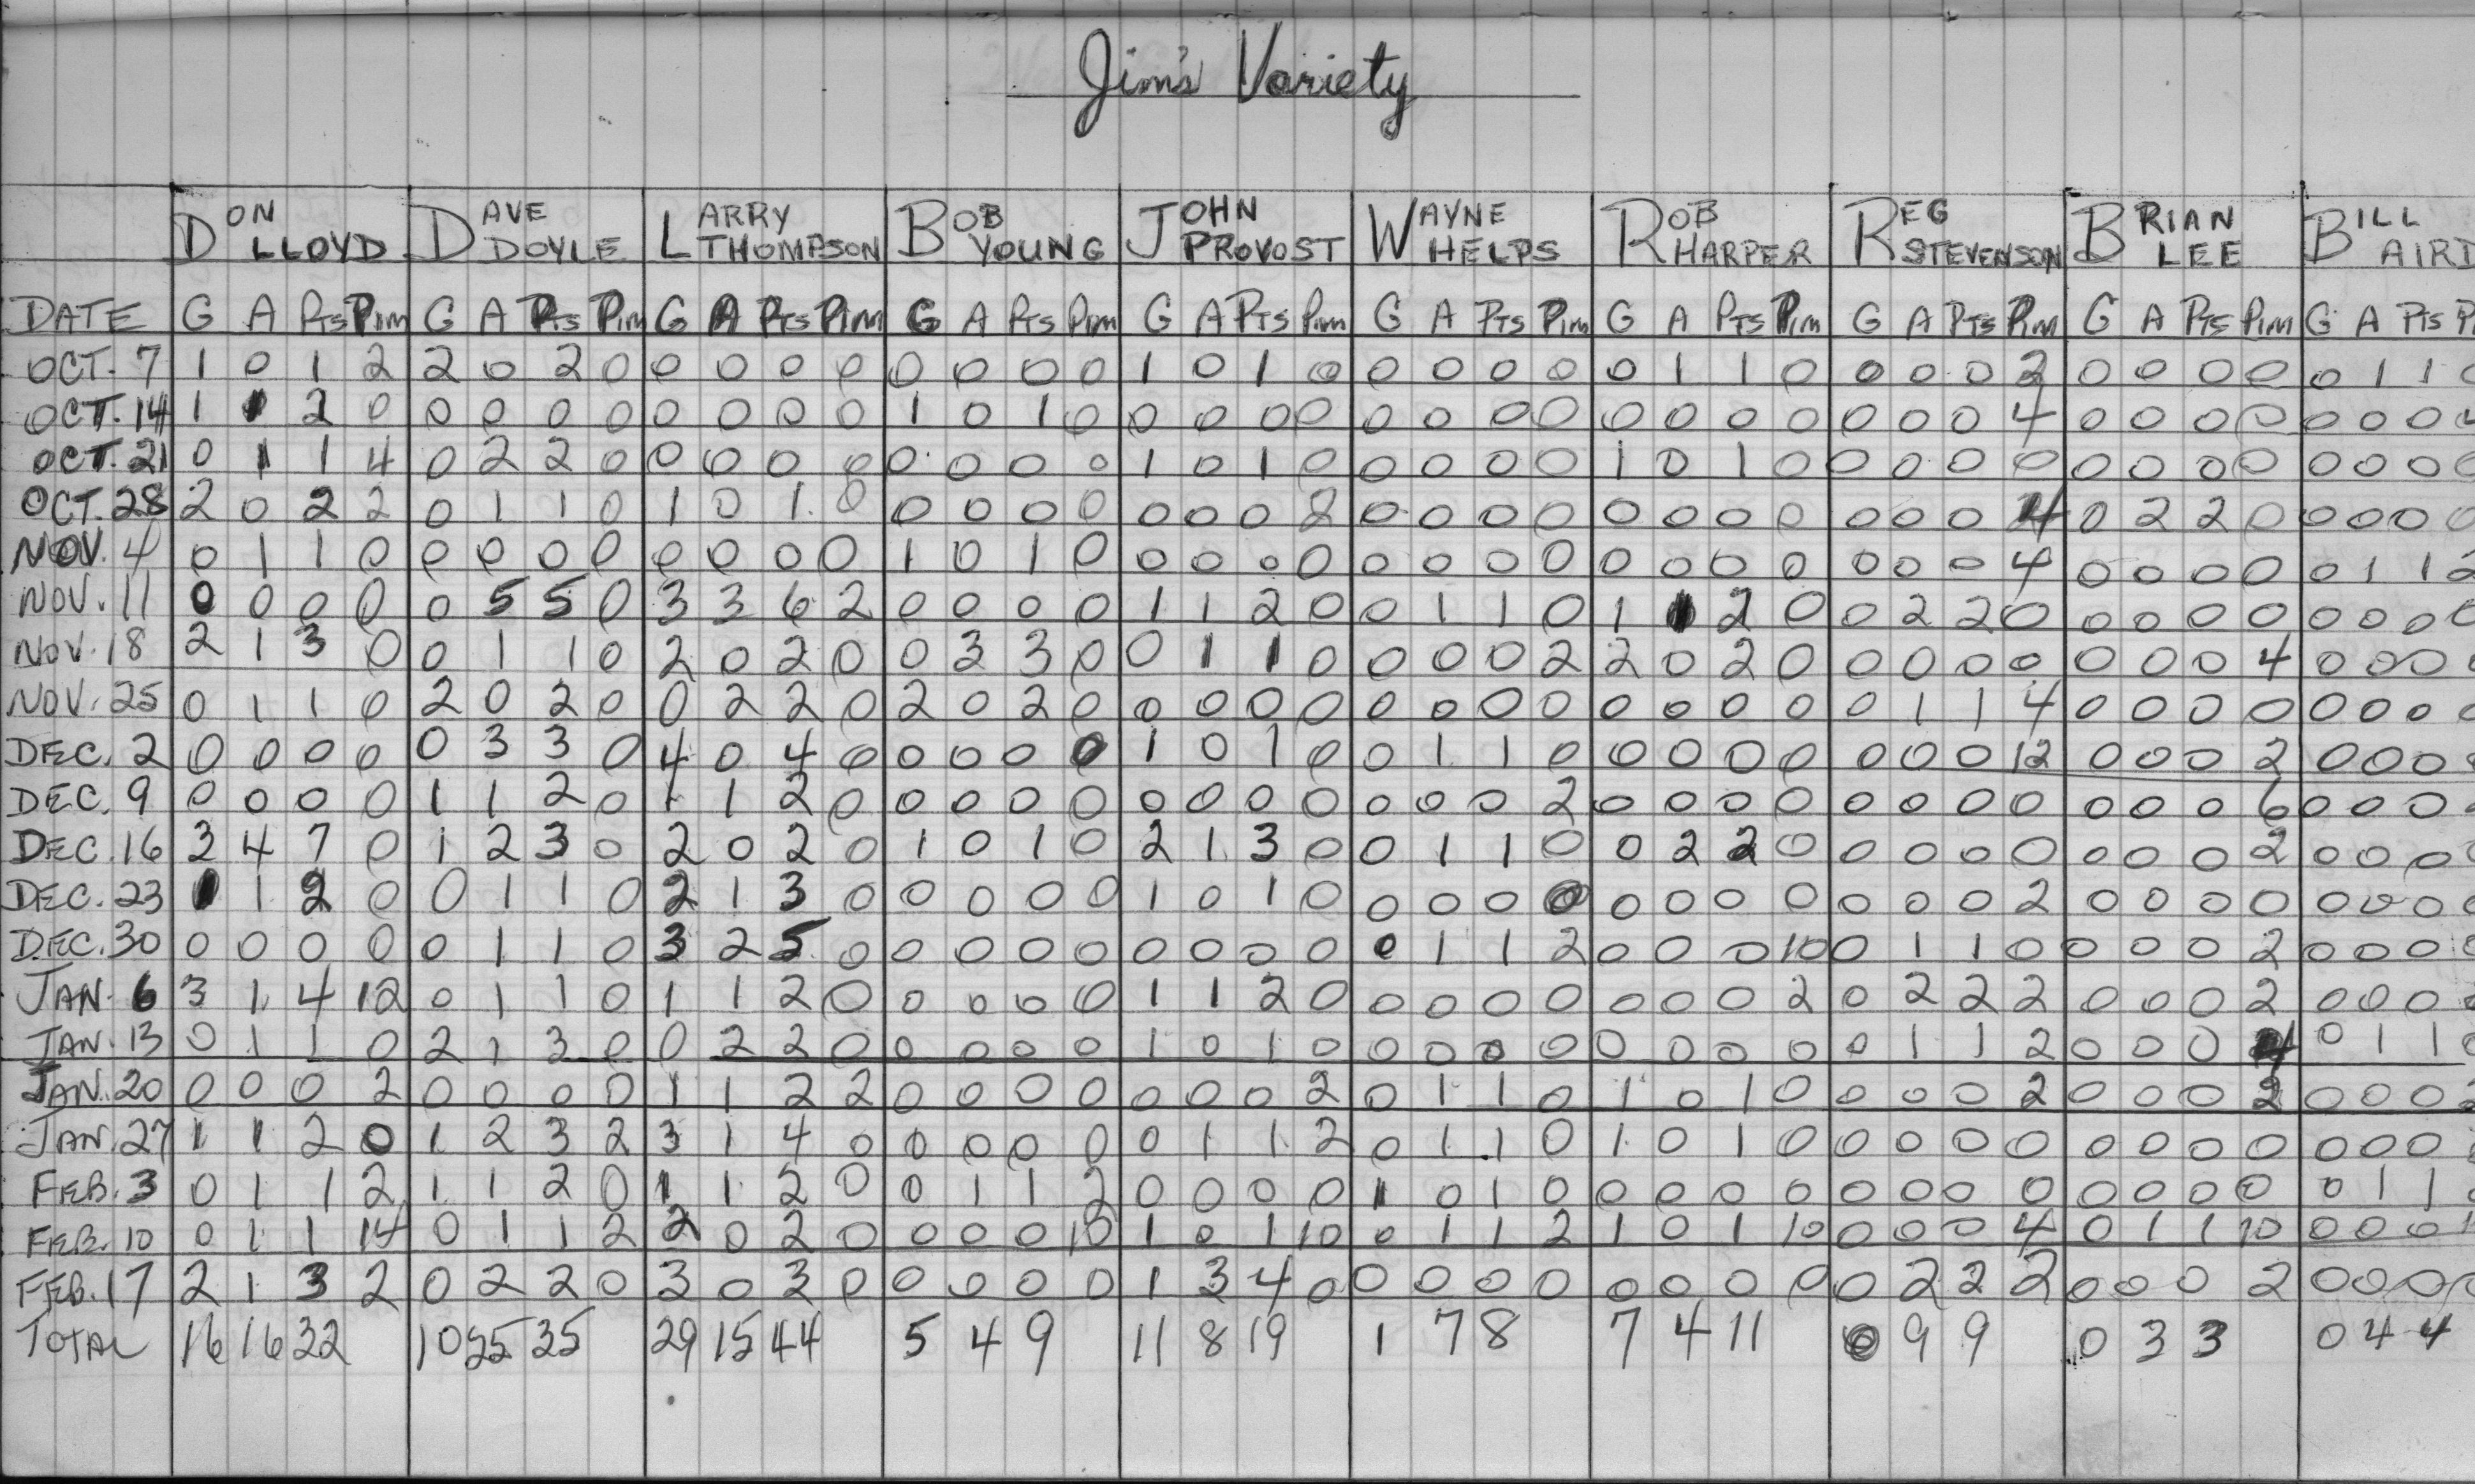 Jim's Variety
DON LLOYD DAVE DOYLE LARRY THOMPSON BOB YOUNG JOHN PROVOST WAYNE HELPS ROB HARPER REG STEVENSON BRIAN LEE BILL AIRD
DATE G A PTS PIM G A PTS PIM G A PTS PIM G A PTS PIM G A PTS PIM G A PTS PIM G A PTS PIM G A PTS PIM G A PTS PIM G A PTS
OCT. 7 1 0 1 2 2 0 2 0 0 0 0 0 0 0 0 0 1 0 1 0 0 0 0 0 0 1 1 0 0 0 0 2 0 0 0 0 0 1 1
OCT. 14 1 1 2 0 0 0 0 0 0 0 0 0 1 0 1 0 0 0 0 0 0 0 0 0 0 0 0 0 0 0 0 4 0 0 0 0 0 0 0
OCT. 21 0 1 1 4 0 2 2 0 0 0 0 0 0 0 0 0 1 0 1 0 0 0 0 0 1 0 1 0 0 0 0 0 0 0 0 0 0 0 0
OCT. 28 2 0 2 2 0 1 1 0 1 0 1 0 0 0 0 0 0 0 0 2 0 0 0 0 0 0 0 0 0 0 0 4 0 2 2 0 0 0 0
NOV. 4 0 1 1 0 0 0 0 0 0 0 0 0 1 0 1 0 0 0 0 0 0 0 0 0 0 0 0 0 0 0 0 4 0 0 0 0 0 1 1 2
NOV. 11 0 0 0 0 0 5 5 0 3 3 6 2 0 0 0 0 1 1 2 0 0 1 1 0 1 1 2 0 0 2 2 0 0 0 0 0 0 0 0
NOV. 18 2 1 3 0 0 1 1 0 2 0 2 0 0 3 3 0 0 1 1 0 0 0 0 2 2 0 2 0 0 0 0 0 0 0 0 4 0 0 0
NOV. 25 0 1 1 0 2 0 2 0 0 2 2 0 2 0 2 0 0 0 0 0 0 0 0 0 0 0 0 0 0 1 1 4 0 0 0 0 0 0 0
DEC. 2 0 0 0 0 0 3 3 0 4 0 4 0 0 0 0 0 1 0 1 0 0 1 1 0 0 0 0 0 0 0 0 12 0 0 0 2 0 0 0
DEC. 9 0 0 0 0 1 1 2 0 1 1 2 0 0 0 0 0 0 0 0 0 0 0 0 2 0 0 0 0 0 0 0 0 0 0 0 6 0 0 0
DEC. 16 3 4 7 0 1 2 3 0 2 0 2 0 1 0 1 0 2 1 3 0 0 1 1 0 0 2 2 0 0 0 0 0 0 0 0 2 0 0 0
DEC. 23 1 1 2 0 0 1 1 0 2 1 3 0 0 0 0 0 1 0 1 0 0 0 0 0 0 0 0 0 0 0 0 2 0 0 0 0 0 0 0
DEC. 30 0 0 0 0 0 1 1 0 3 2 5 0 0 0 0 0 0 0 0 0 0 1 1 2 0 0 0 10 0 1 1 0 0 0 0 2 0 0 0
JAN. 6 3 1 4 12 0 1 1 0 1 1 2 0 0 0 0 0 1 1 2 0 0 0 0 0 0 0 0 2 0 2 2 2 0 0 0 2 0 0 0
JAN. 13 0 1 1 0 2 1 3 0 0 2 2 0 0 0 0 0 1 0 1 0 0 0 0 0 0 0 0 0 0 1 1 2 0 0 0 4 0 1 1
JAN. 20 0 0 0 2 0 0 0 0 1 1 2 2 0 0 0 0 0 0 0 2 0 1 1 0 1 0 1 0 0 0 0 2 0 0 0 2 0 0 0
JAN. 27 1 1 2 0 1 2 3 2 3 1 4 0 0 0 0 0 0 1 1 2 0 1 1 0 1 0 1 0 0 0 0 0 0 0 0 0 0 0 0
FEB. 3 0 1 1 2 1 1 2 0 1 1 2 0 0 1 1 2 0 0 0 0 1 0 1 0 0 0 0 0 0 0 0 0 0 0 0 0 0 1 1
FEB. 10 0 1 1 14 0 1 1 2 2 0 2 0 0 0 0 10 1 0 1 10 0 1 1 2 1 0 1 10 0 0 0 4 0 1 1 10 0 0 0
FEB. 17 2 1 3 2 0 2 2 0 3 0 3 0 0 0 0 0 1 3 4 0 0 0 0 0 0 0 0 0 0 2 2 2 0 0 0 2 0 0 0
TOTAL 16 16 32 10 25 35 29 15 44 5 4 9 11 8 19 1 7 8 7 4 11 0 9 9 0 3 3 0 4 4